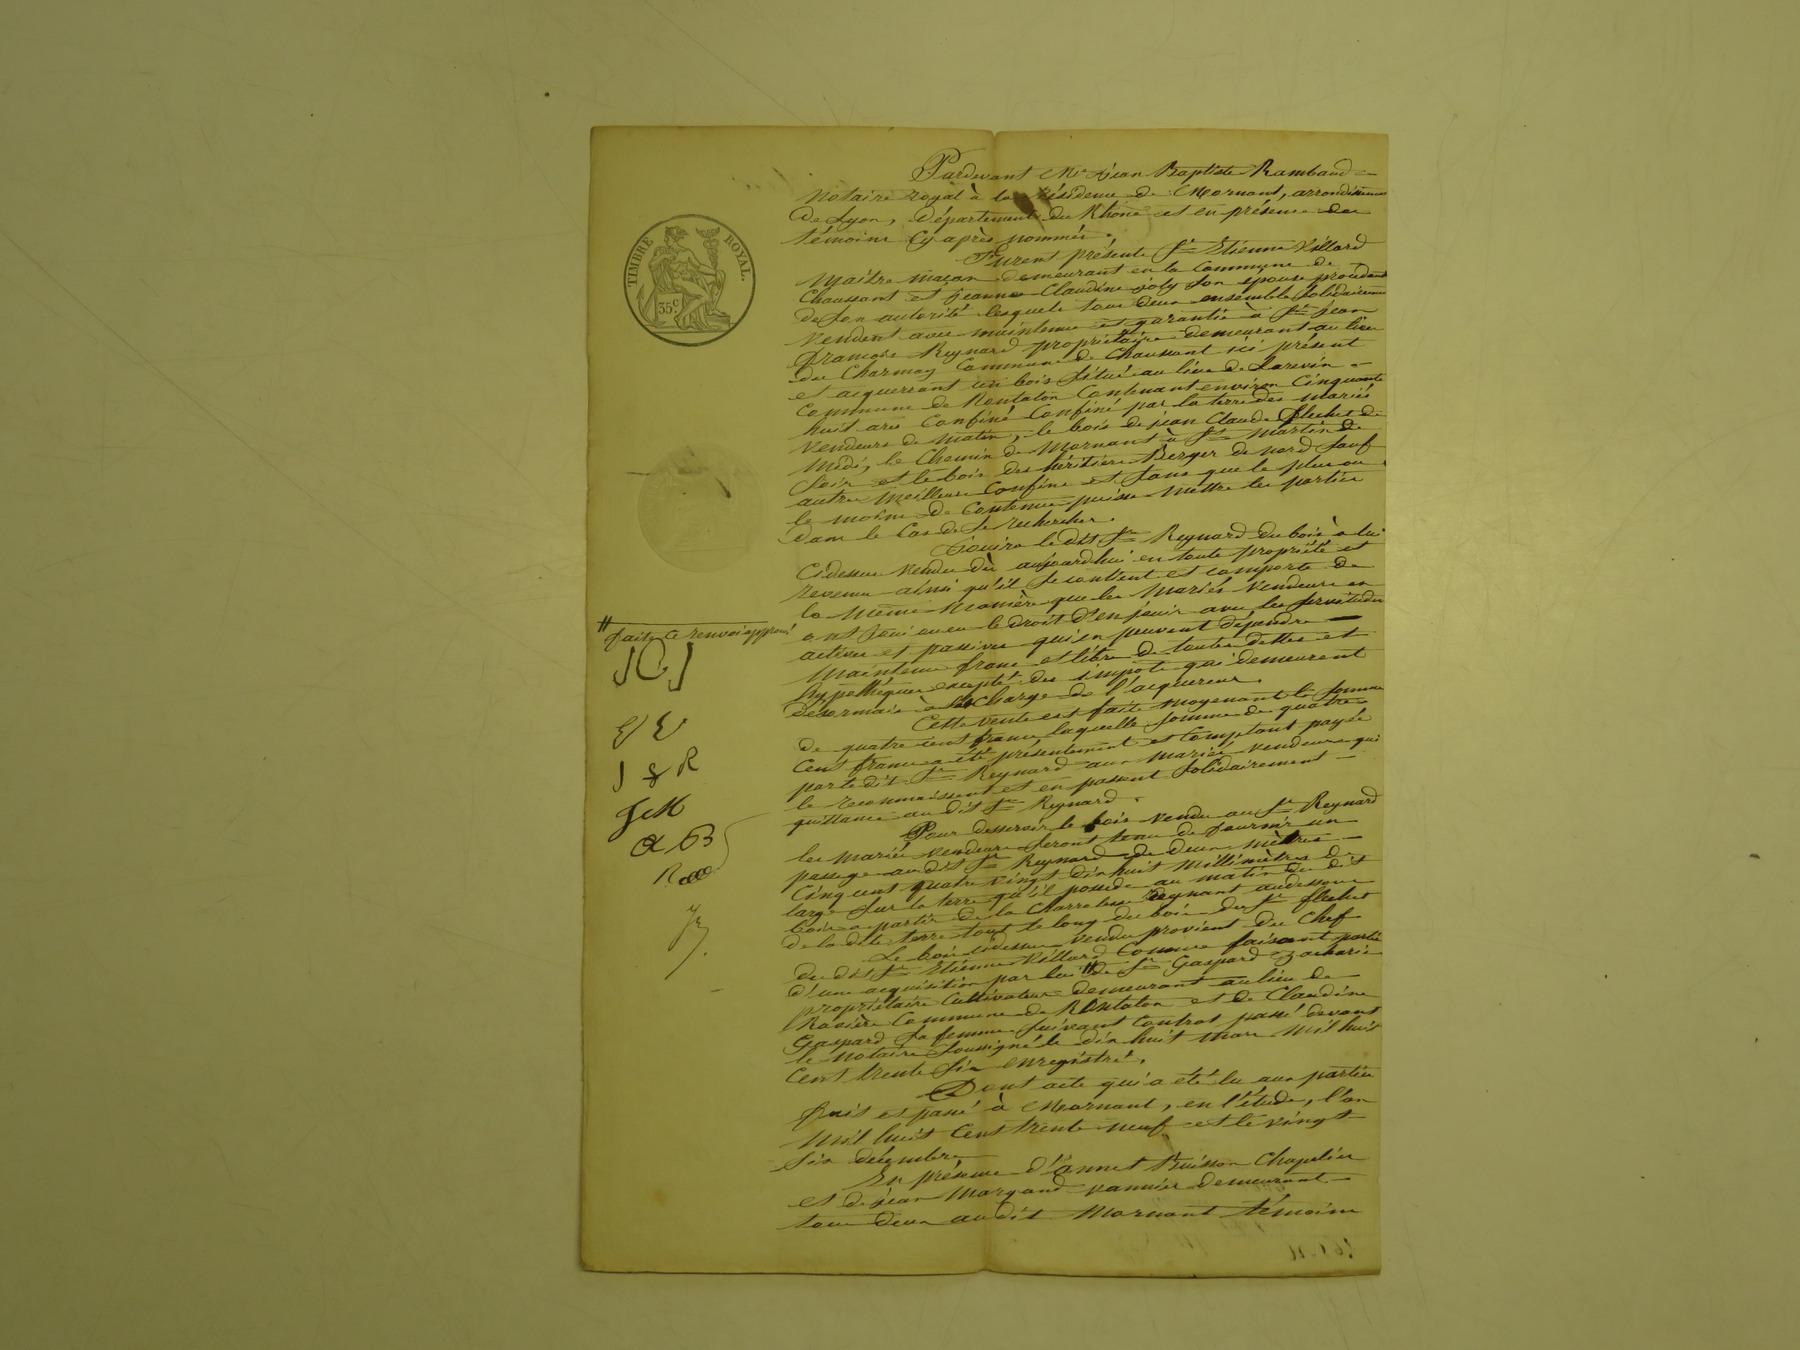 Pardevant Me Jean Baptiste Rambaud
Notaire royal à la résidence de Mornant, arrondissement
de Lyon, Département du Rhône et en présence des
témoins cy après nommés.
TIMBRE ROYAL.
35 c
Furent présents Sr Etienne Villard
Maître maçon demeurant en la Commune de
Chaussant et jeanne Claudine joly son épouse procédant
de son autorité lesquels tous deux ensemble solidairement
Vendent avec maintenue et garantie à Sr jean
françois Reynard propriétaire demeurant au lieu
du Charmay Commune de Chaussant ici présent
et acquerrant un bois situé au lieu de
Commune de Rontalon Contenant environ Cinquante
huit ares Confiné Confiné par la terre des mariés
Vendeurs de matin, le bois de jean Claude flechet de
midi, le Chemin de Mornant à St Martin de
soir et le bois des héritiers Berger de nord sauf
autres meilleurs Confins et sans que le plus ou
le moins de Contenue puisse mettre les parties
dans le Cas de se rechercher.
Jouira le dit Sr Reynard du bois à lui
Cidessus vendu dès aujourdhui en toute propriété et
revenu ainsi qu'il se contient et comporte de
la même manière que les Mariés Vendeurs en
ont joui ou eu le droit d'en jouir avec les servitudes
actives et passives qui en peuvent dépendre
Maintenu franc et libre de toutes dettes et
hypothèques excepté des impots qui demeurent
désormais à la Charge de l'acquereur.
Cette vente est faite moyenant la somme
de quatre cent francs laquelle somme de quatre
Cent francs a été présentement et Comptant payée
par le dit Sr Reynard aux mariés vendeurs qui
le reconnaissent et en passent solidairement
quittance au dit Sr Reynard.
Pour desservir le bois vendu au Sr Reynard
les mariés vendeurs seront tenu de fournir un
passage au dit Sr Reynard de deux mètres
Cinq cent quatre vingt dix huit millimètres de
large sur la terre qu'il possède au matin du dit
bois a partir de la Charratière régnant audessous
de la dite terre tout le long du bois du Sr flechet
Le bois cidessus vendu provient du Chef
du dit Sr Etienne Villard Comme faisant partie
d'une acquisition par lui # de Sr Gaspard Zacharie
propriétaire Cultivateur demeurant au lieu de
Ravière Commune de Rontalon et de Claudine
Gaspard sa femme suivant Contrat passé devant
le Notaire soussigné le dix huit mars mil huit
Cent trente six enregistré.
Dont acte qui a été lu aux parties
fait et passé à Mornant, en l'étude, l'an
Mil huit Cent trente neuf et le vingt
Six décembre
En présence d'annet Buisson Chapelier
et de jean Margand vannier demeurant
tous deux au dit Mornant témoins
# faite ce renvoi approuvé
J C J
E V
J f R
J M
A B
R